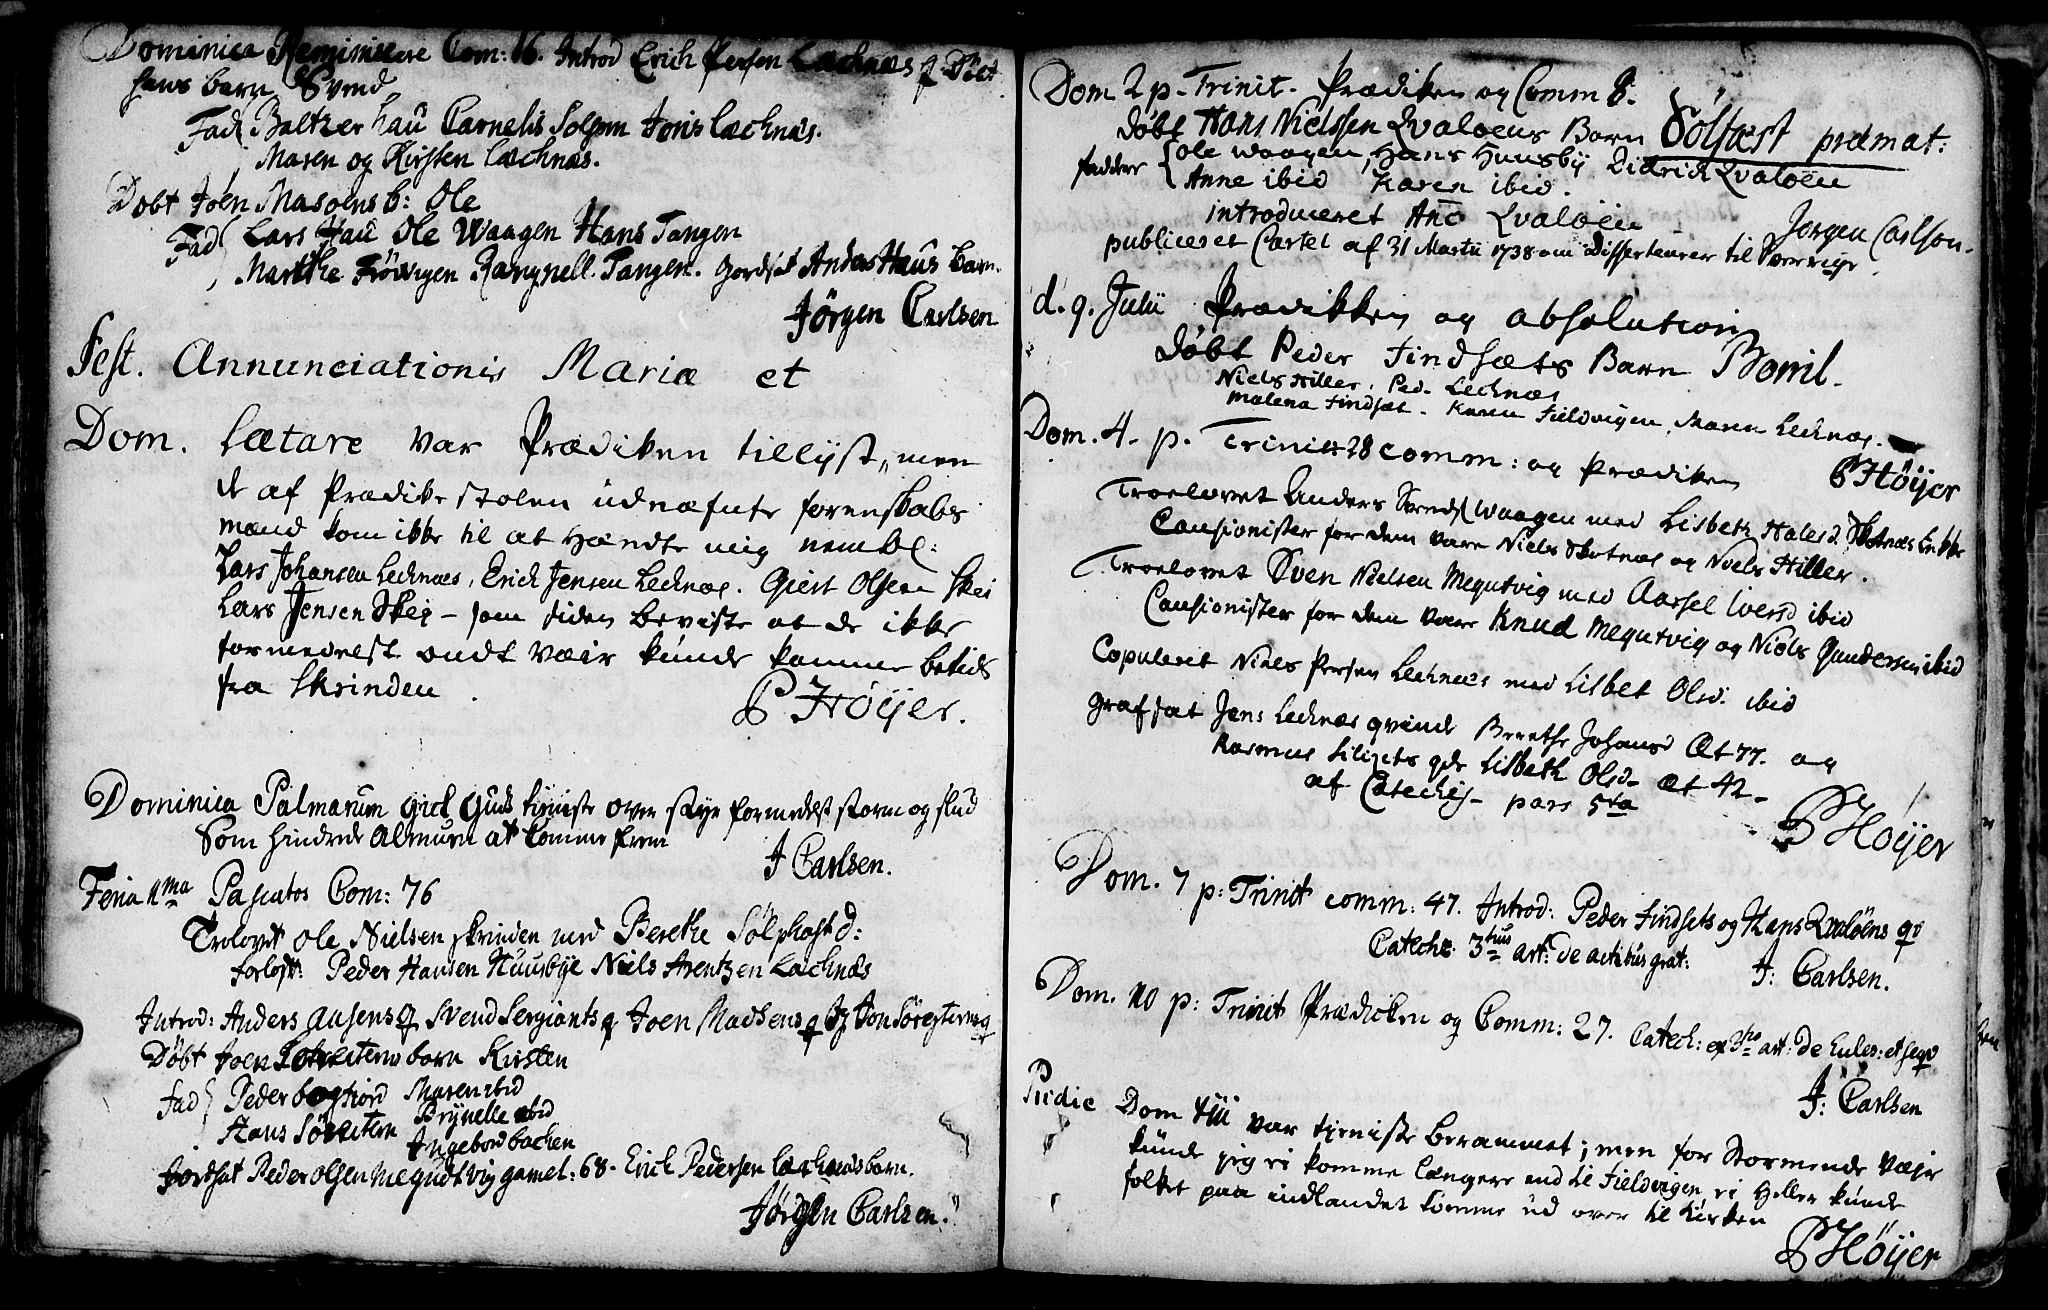 Dominica Reminiscere Com: 16. Introd Erich Persen Lachnæs q. Döbt
hans barn Svend
Fad Baltzer hau Carnelis Solgrun Jonis Lachnæs.
Maren og Kirsten Lachnæs.
Döbt Joen Masoens b: Ole
Fad Lars Hau Ole Waagen Hans Tangen
Marthe Frödvigen Rangnell Tangen. Jordsat Anders Haus barn.
Jörgen Carlsen
Fest. Annunciationis Mariæ et
Dom. Lætare var Prædiken tillyst, men
de af Prædikestolen udnæfnte forenskabs
mænd kom ikke til at Hændte mig nembl:
Lars Johansen Lechnæs, Erich Jensen Lechnæs. Giert Olsen Skei
Lars Jensen Skej – som siden beviste at de ikke
formedelst ondt væir kunde komme betids
fra Skrinden.
P Höijer.
Dominica Palmarum gick Guds tieniste over styr formedelst storm og slud
Som hindrede Almuen at komme frem
J Carlsen.
Feria 1ma Pascatos Com: 76
Trolovet Ole Nielsen Skrinden med Berethe Sölphastd:
forloft: Peder Hansen Huusbye Niels Arentzen Lachnæs
Introd: Anders Ausens q Svend Sergiants q Joen Madsens q og Jon
Döbt Joen barn Kirsten
Fad Peder bogfiord Maren ibid
Hans Brynelle ibid
Ingebor bachen
Jordsat Peder Olsen Megudtvig gamel: 68. Erich Pedersen Lachnæs barn.
Jörgen Carlsen.
Dom 2 p. Trinit. Prædiken og Comm 8.
Döbt Hans Nielssen Qvaloens Barn Sölfæst præmat:
faddere Ole Waagen, Hans Hunsby Didrich Qvalöen
Anne ibid Karen ibid.
introduceret Ane Qvalöen
Jörgen Carlson.
publiceret Cartel af 31 Martii 1738 om Disserteurer til Sverrige
d. 9. Julii Prædikken og absolution
Döbt Peder Findsæts Barn Bonil.
Niels Hiller, Ped. Lechnæs
Malena Findsæt. Karen Fieldvigen, Maren Lechnæs.
Dom. 4. p. Trinit 28 comm: og Prædiken
P Höijer
Troelovet Anders Svends Waagen med Lisbeth Halesd Skotnæs Enkke
Causionister for dem vare Niels Skotnæs og Niels Hiller.
Troelovet Sven Nielsen Megutvig med Aassel Iversd ibid
Causionister for dem vare Knud Megutvig og Niels Gundersen ibid
Copuleret Niels Persen Lechnæs med Lisbet Olsd. ibid
Grafsat Jens Lechnæs qvinde Berethe Johansd Æt 77. og
Rasmus qde Lisbeth Olsd æt 42.
af Catechis. pars 5ta
P Höijer
Dom. 7 p: Trinit comm: 47. Introd: Peder Findsets og Hans Qvalöens qv
Catech: 3tius art: de actibus grat:
J: Carlsen.
Dom. 10 p: Trinit Prædicken og Comm: 27. Catech: ex 3tio art: de
J: Carlsen
Pridie Dom var tieniste berammet; men for Stormende væjr
kunde jeg ei komme længere end til Fieldvigen, ei Heller kunde
folket paa indlandet komme ud over til Kirken
P Höijer